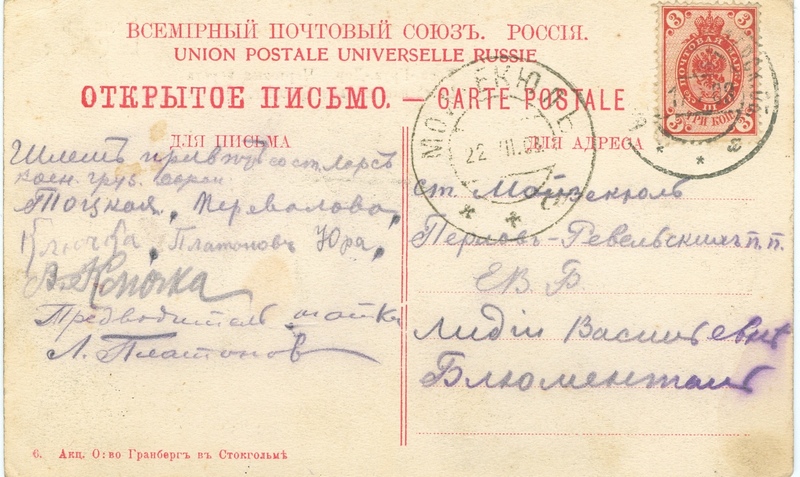 ВСЕМІРНЫЙ ПОЧТОВЫЙ СОЮЗЪ. РОССІЯ.
UNION POSTALE UNIVERSELLE RUSSIE
ОТКРЫТОЕ ПИСЬМО. — CARTE POSTALE
ДЛЯ ПИСЬМА
Шлемъ привѣтъ
Тоцкая, Перевалова,
Ключка, Платоновъ Юра,
А. Ключка
Предводитель шайки
Л. Платоновъ
ДЛЯ АДРЕСА
ст. Мойзекюль
Перновъ-Ревельскихъ п.п.
Е В Б
Лидіи Васильевнѣ
Блюменталь
22
3
3
3
3
6. Акц. О:во Гранбергъ въ Стокгольмѣ